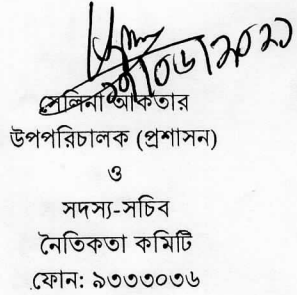 ২০/০৬/২০২১
সেলিনা আকতার
উপপরিচালক (প্রশাসন)
ও
সদস্য-সচিব
নৈতিকতা কমিটি
ফোন: ৯৩৩৩০৩৬